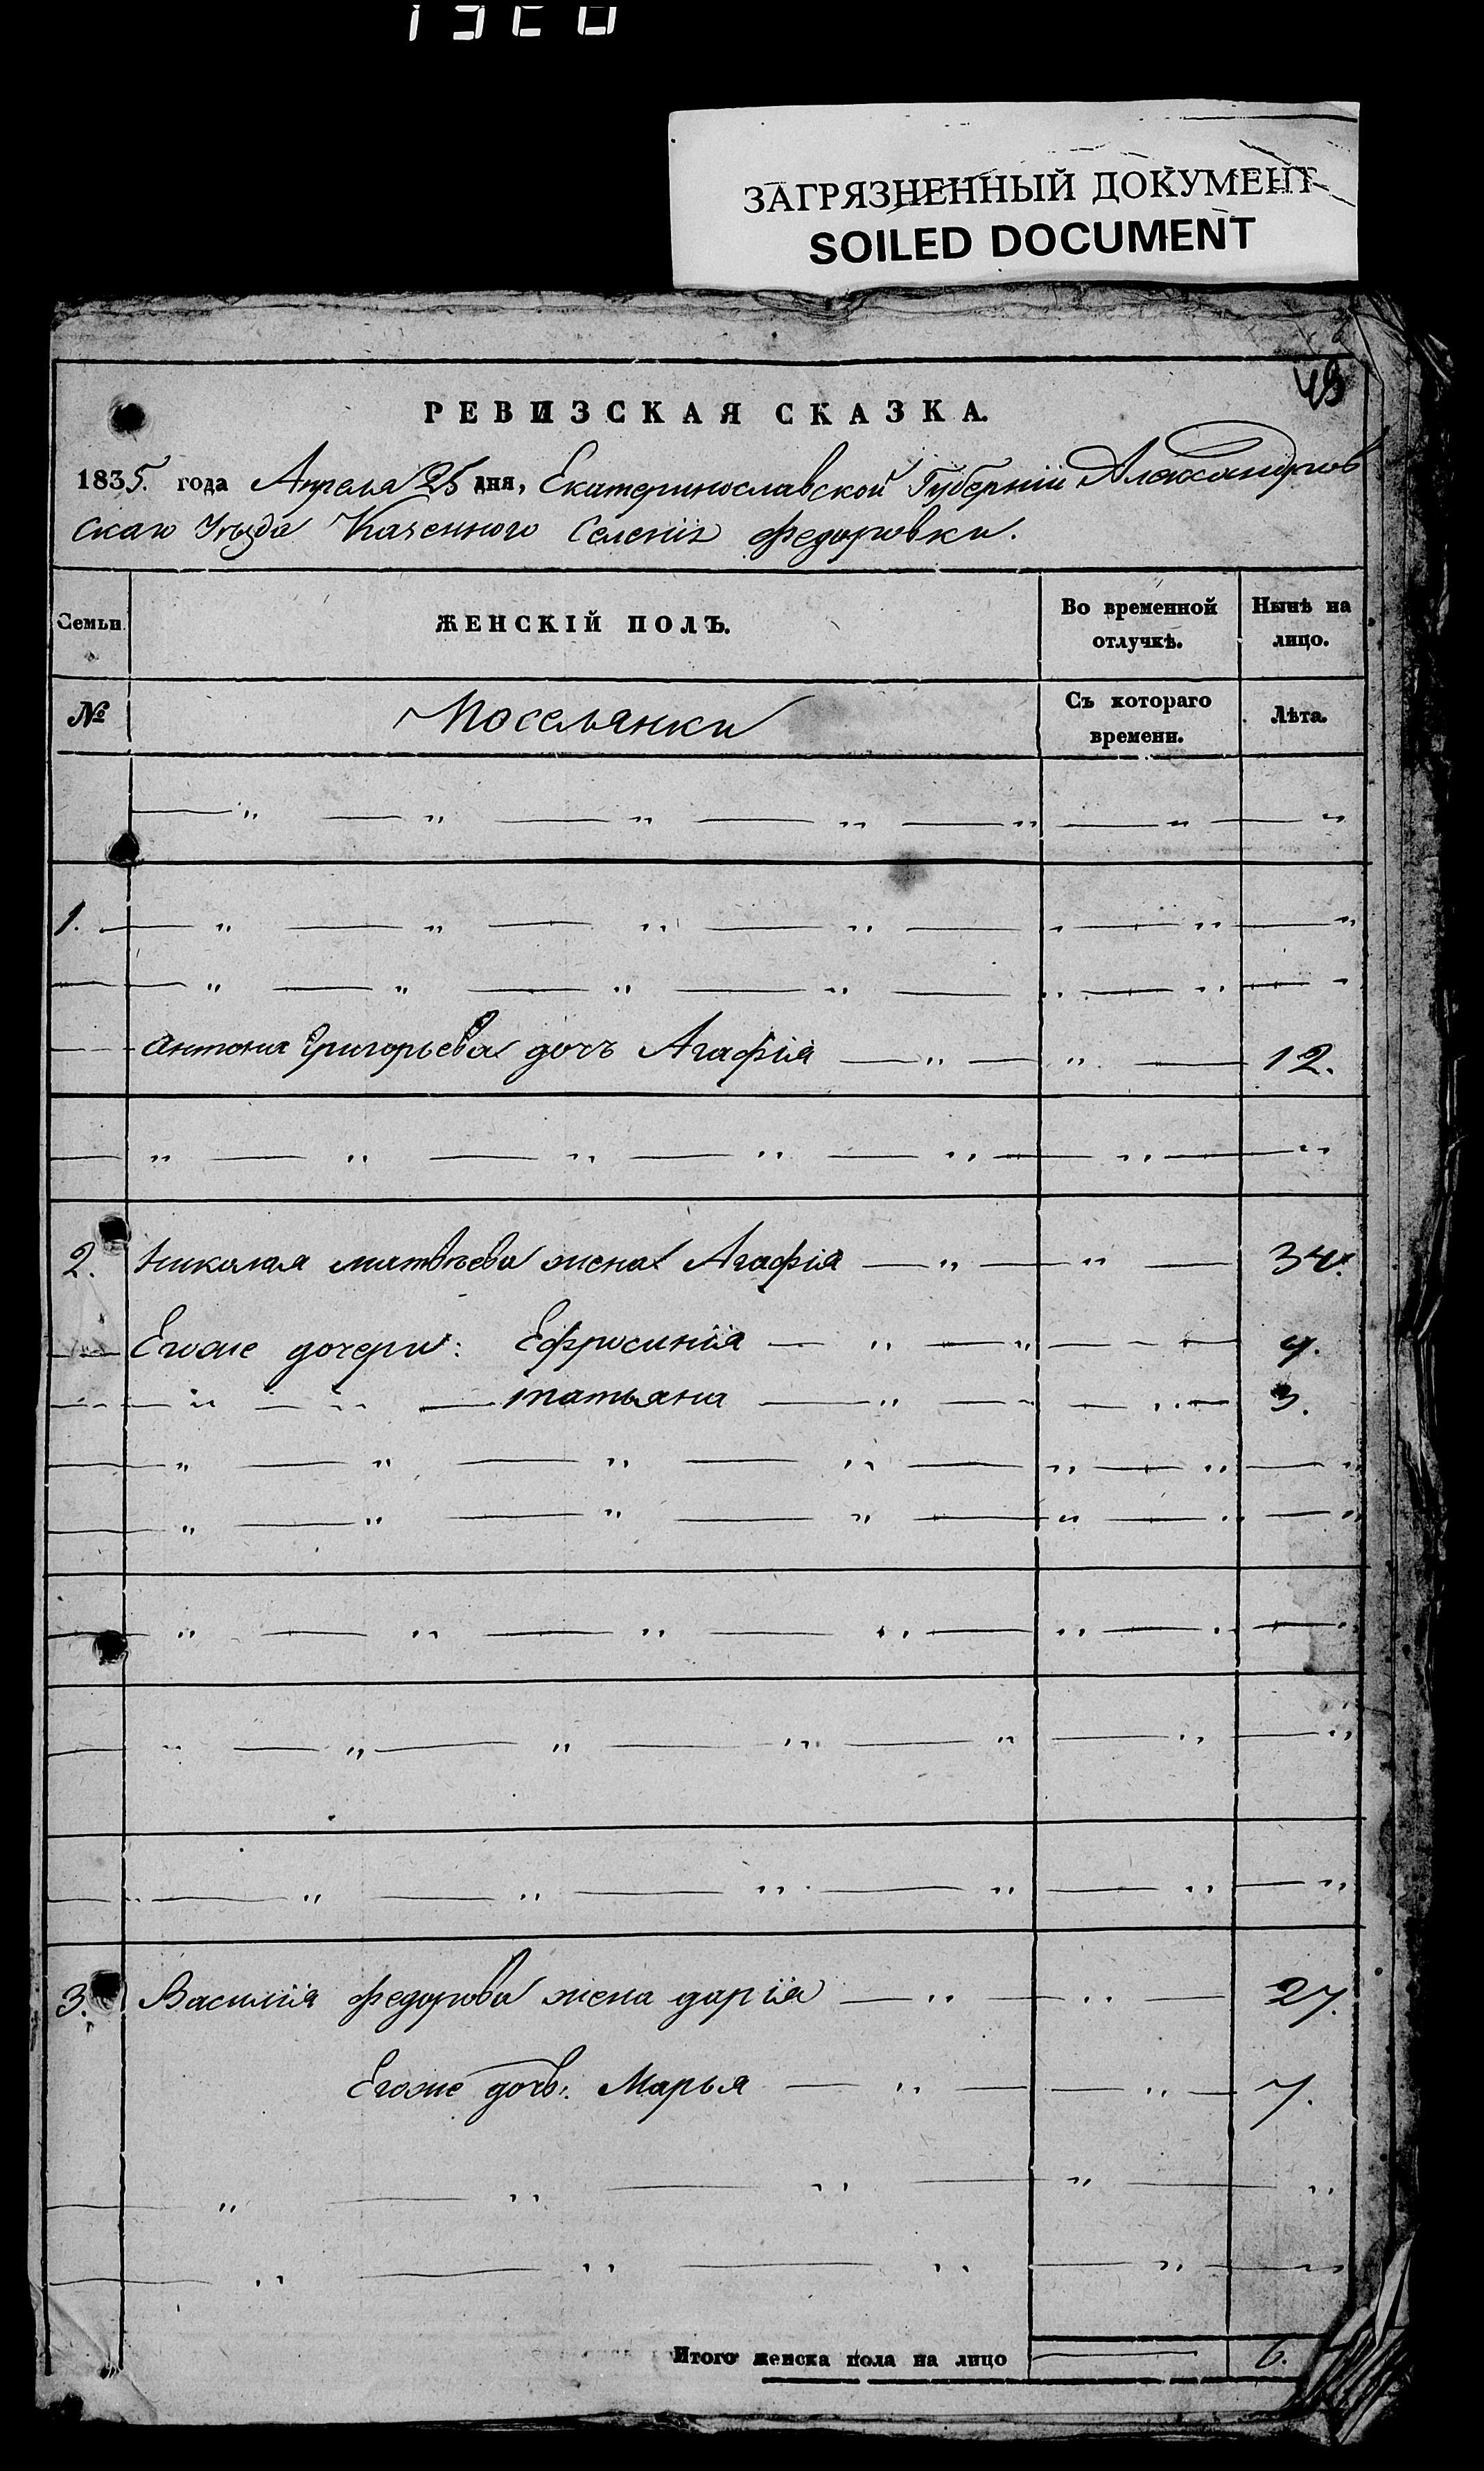 ЗАГРЯЗНЕННЫЙ ДОКУМЕНТ
SOILED DOCUMENT
49
РЕВИЗСКАЯ СКАЗКА.
1835. года Апреля 25 дня, Екатеринославской Губерніи Александров
скаго Уѣзда Казенного Селенія Федоровки.
Семьи. ЖЕНСКІЙ ПОЛЪ. Во временной отлучкѣ. Нынѣ на лицо.
№ Поселянки Съ котораго времени. Лѣта.
1.
Антона Григорьева дочь Агафія 12.
2. Николая Матвѣева жена Агафія 34.
Егоже дочери: Ефросинія 9.
Татьяна 3.
3. Василія Федорова жена Дарія 27.
Егоже дочь: Марья 7.
Итого женска пола на лицо 6.